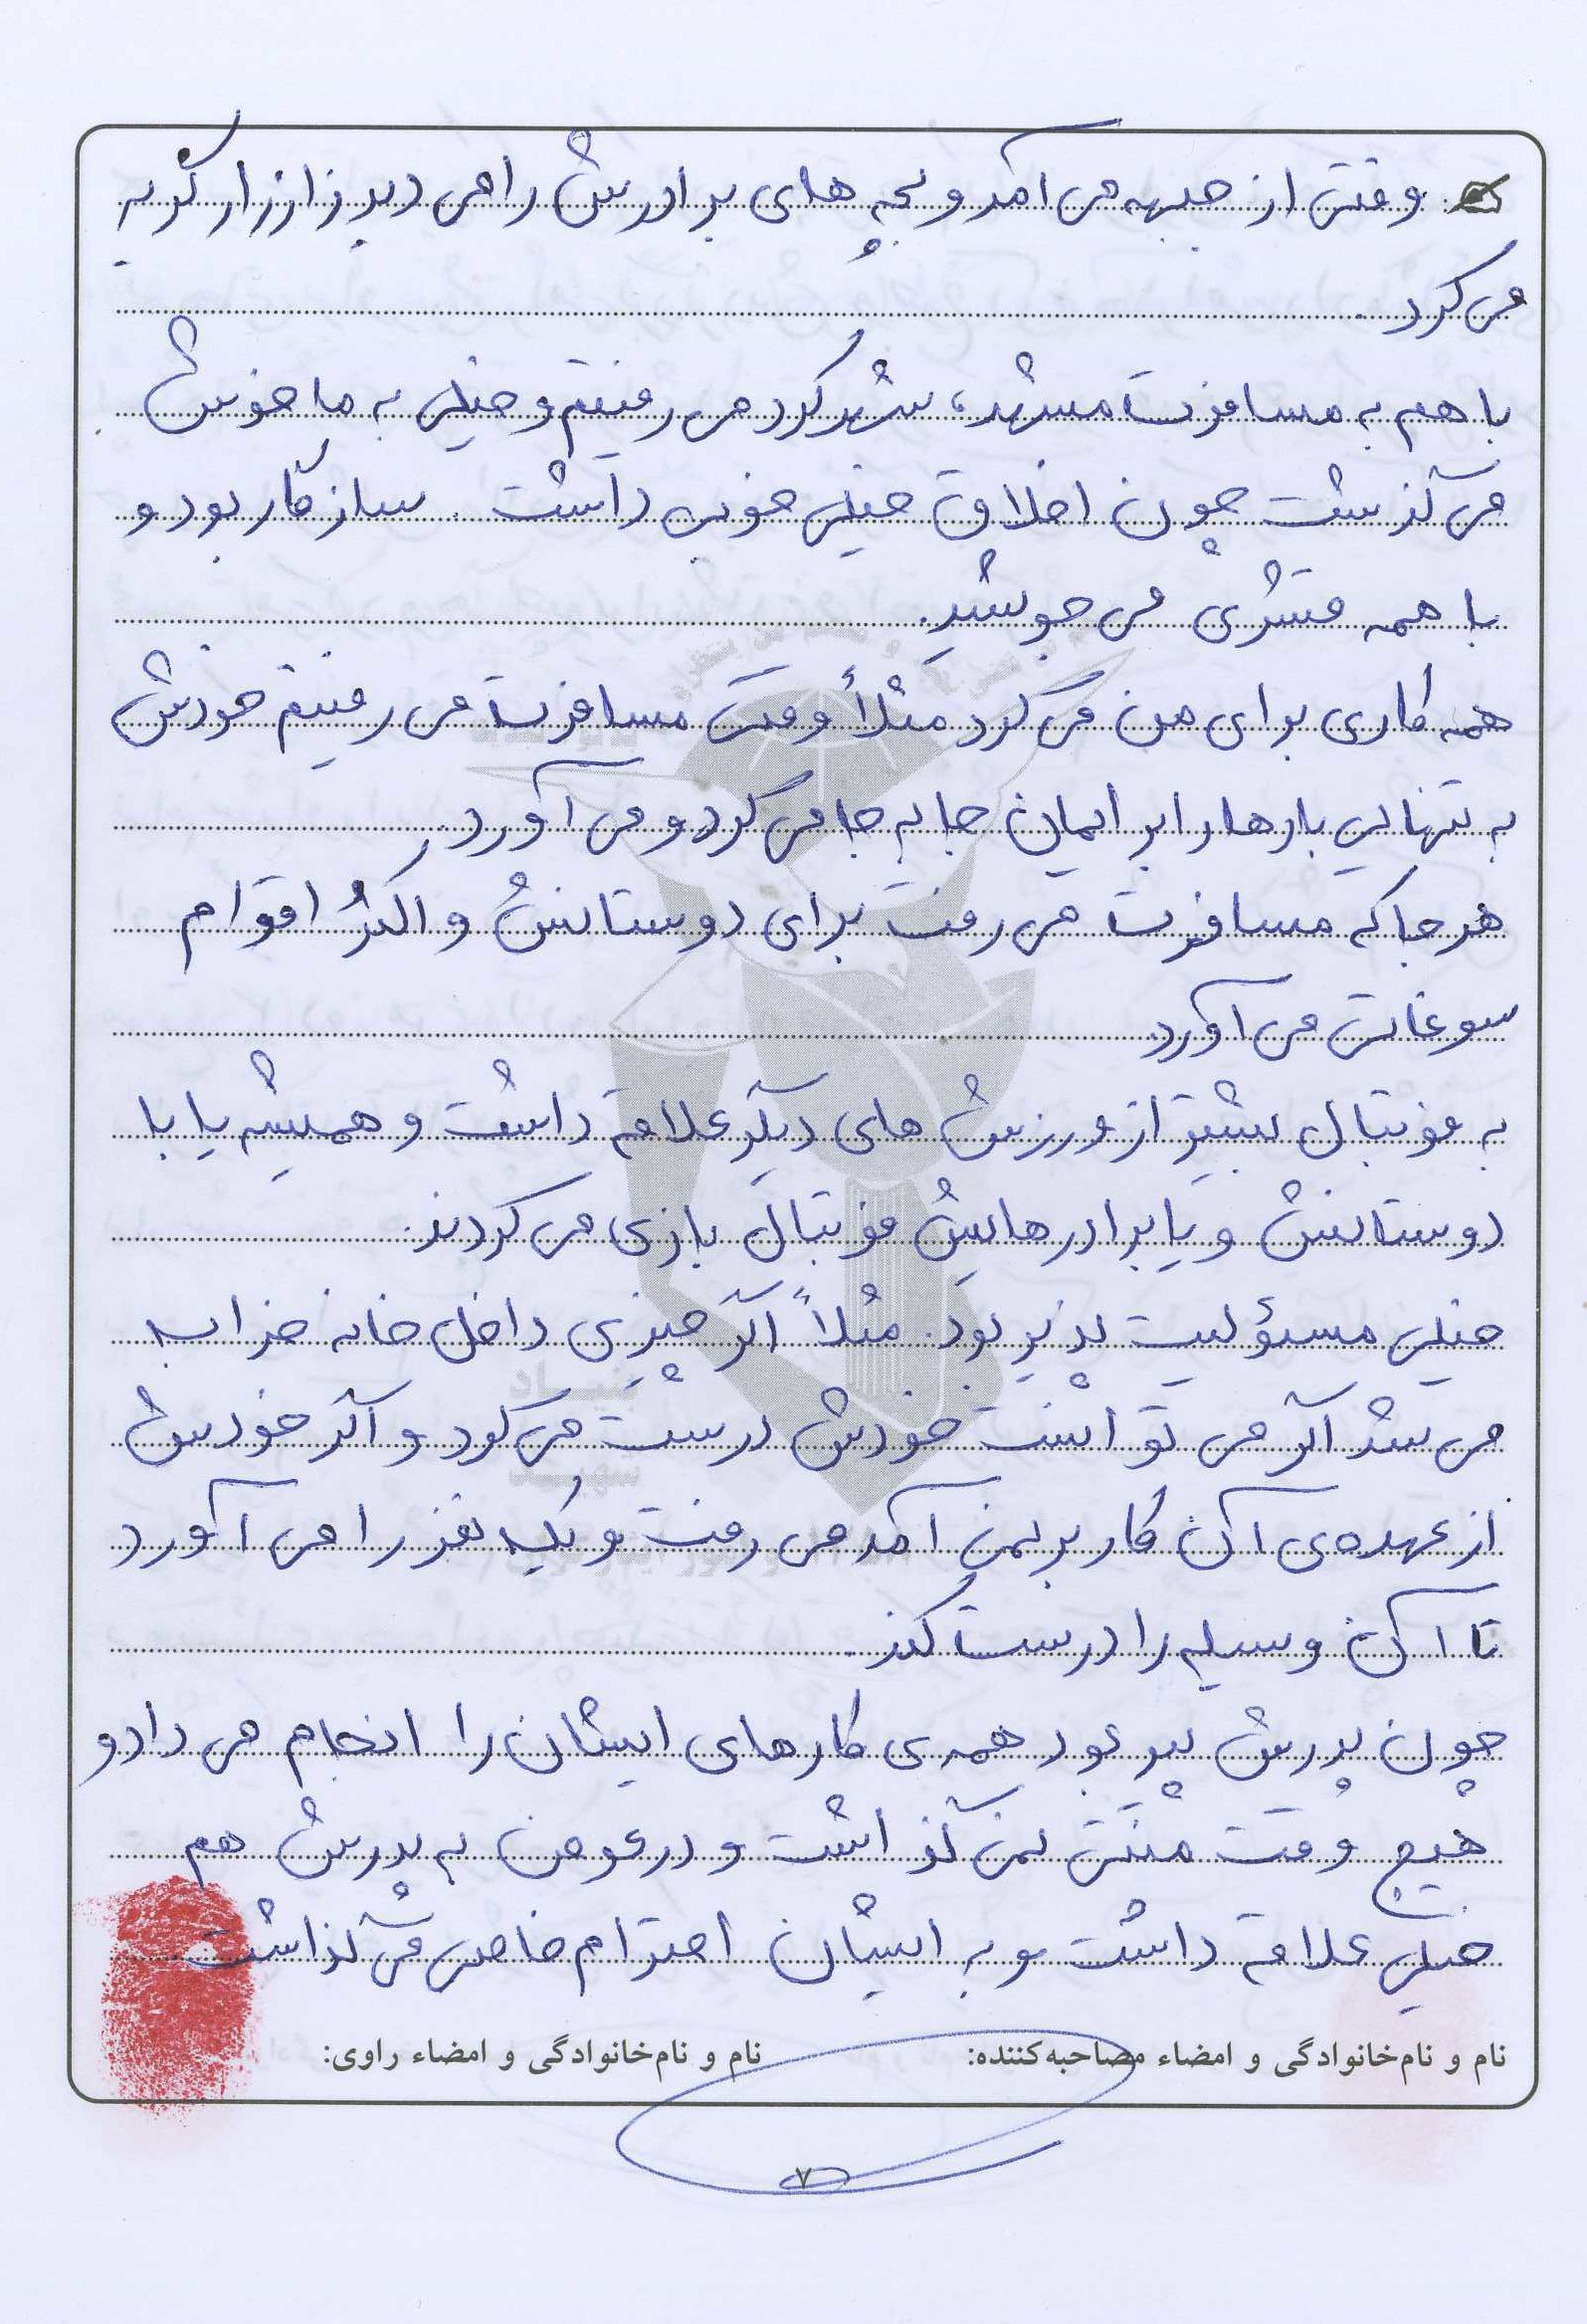 وقتی از جبهه می آمد و بچه های برادرش را می دید زار زار گریه
می کرد.
با هم به مسافرت مشهد، شهرکرد می رفتیم و خیلی به ما خوش
می گذشت چون اخلاق خیلی خوبی داشت. سازگار بود و
با همه قشری می جوشید.
همه کاری برای من می کرد مثلاً وقت مسافرت می رفتیم خودش
به تنهایی بارها را برایمان جا به جا می کرد و می آورد.
هر جا که مسافرت می رفت برای دوستانش و اکثر اقوام
سوغاتی می آورد
به فوتبال بیشتر از ورزش های دیگر علاقه داشت و همیشه یا با
دوستانش و یا برادرهایش فوتبال بازی می کردند.
خیلی مسئولیت پذیر بود. مثلاً اگر چیزی داخل خانه خراب
می شد اگر می توانست خودش درست می کرد و اگر خودش
از عهده ی آن کار بر نمی آمد می رفت و یک نفر را می آورد
تا آن وسیله را درست کند.
چون پدرش پیر بود همه ی کارهای ایشان را انجام می داد و
هیچ وقت منتی نمی گذاشت و در عوض به پدرش هم
خیلی علاقه داشت و به ایشان احترام خاصی می گذاشت.
نام و نام‌خانوادگی و امضاء مصاحبه‌کننده: نام و نام‌خانوادگی و امضاء راوی:
۷